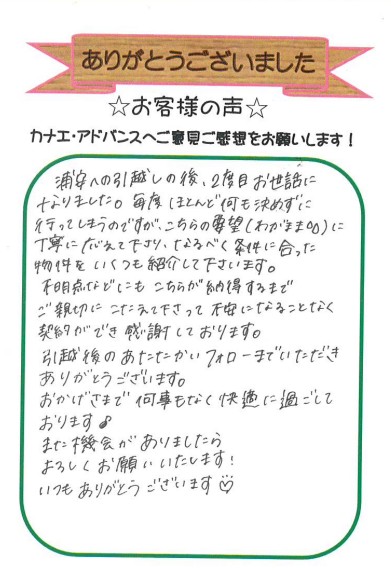 ありがとうございました
☆お客様の声☆
カナエ・アドバンスへご意見ご感想をお願いします！
浦安への引越しの後、2度目お世話に
なりました。毎度ほとんど何も決めずに
行ってしまうのですが、こちらの要望(わがまま)に
丁寧に応えて下さり、なるべく条件に合った
物件をいくつも紹介して下さいます。
不明点などにもこちらが納得するまで
ご親切にこたえて下さって不安になることなく
契約ができ感謝しております。
引越後のあたたかいフォローまでいただき
ありがとうございます。
おかげさまで何事もなく快適に過ごして
おります♪
また機会がありましたら
よろしくお願いいたします！
いつもありがとうございます♡